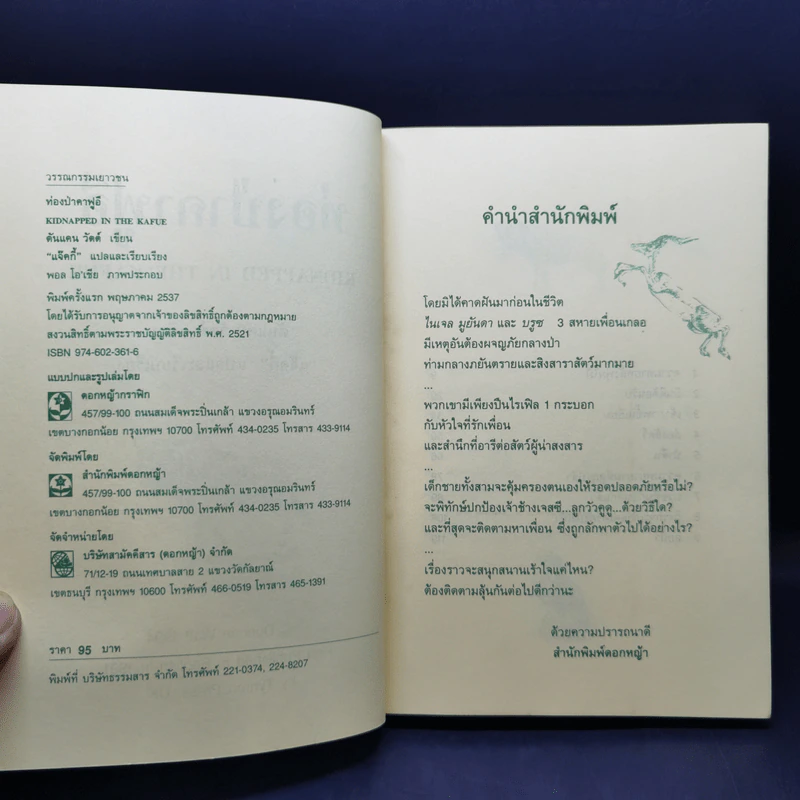 วรรณกรรมเยาวชน
ท่องป่าคาฟูอี
KIDNAPPED IN THE KAFUE
ดันแคน วัตต์ เขียน
"แจ็คกี้" แปลและเรียบเรียง
พอล โอ'เชีย ภาพประกอบ
พิมพ์ครั้งแรก พฤษภาคม 2537
โดยได้รับการอนุญาตจากเจ้าของลิขสิทธิ์ถูกต้องตามกฎหมาย
สงวนสิทธิ์ตามพระราชบัญญัติลิขสิทธิ์ พ.ศ. 2521
ISBN 974-602-361-6
แบบปกและรูปเล่มโดย
ดอกหญ้ากราฟิก
457/99-100 ถนนสมเด็จพระปิ่นเกล้า แขวงอรุณอมรินทร์
เขตบางกอกน้อย กรุงเทพฯ 10700 โทรศัพท์ 434-0235 โทรสาร 433-9114
จัดพิมพ์โดย
สำนักพิมพ์ดอกหญ้า
457/99-100 ถนนสมเด็จพระปิ่นเกล้า แขวงอรุณอมรินทร์
เขตบางกอกน้อย กรุงเทพฯ 10700 โทรศัพท์ 434-0235 โทรสาร 433-9114
จัดจำหน่ายโดย
บริษัทสามัคคีสาร (ดอกหญ้า) จำกัด
71/12-19 ถนนเทศบาลสาย 2 แขวงวัดกัลยาณ์
เขตธนบุรี กรุงเทพฯ 10600 โทรศัพท์ 466-0519 โทรสาร 465-1391
ราคา 95 บาท
พิมพ์ที่ บริษัทธรรมสาร จำกัด โทรศัพท์ 221-0374, 224-8207
คำนำสำนักพิมพ์
โดยมิได้คาดฝันมาก่อนในชีวิต
ไนเจล มูยันดา และ บรูซ 3 สหายเพื่อนเกลอ
มีเหตุอันต้องผจญภัยกลางป่า
ท่ามกลางภยันตรายและสิงสาราสัตว์มากมาย
...
พวกเขามีเพียงปืนไรเฟิล 1 กระบอก
กับหัวใจที่รักเพื่อน
และสำนึกที่อารีต่อสัตว์ผู้น่าสงสาร
...
เด็กชายทั้งสามจะคุ้มครองตนเองให้รอดปลอดภัยหรือไม่?
จะพิทักษ์ปกป้องเจ้าช้างเจสซี่...ลูกวัวคูดู...ด้วยวิธีใด?
และที่สุดจะติดตามหาเพื่อน ซึ่งถูกลักพาตัวไปได้อย่างไร?
...
เรื่องราวจะสนุกสนานเร้าใจแค่ไหน?
ต้องติดตามลุ้นกันต่อไปดีกว่านะ
ด้วยความปรารถนาดี
สำนักพิมพ์ดอกหญ้า